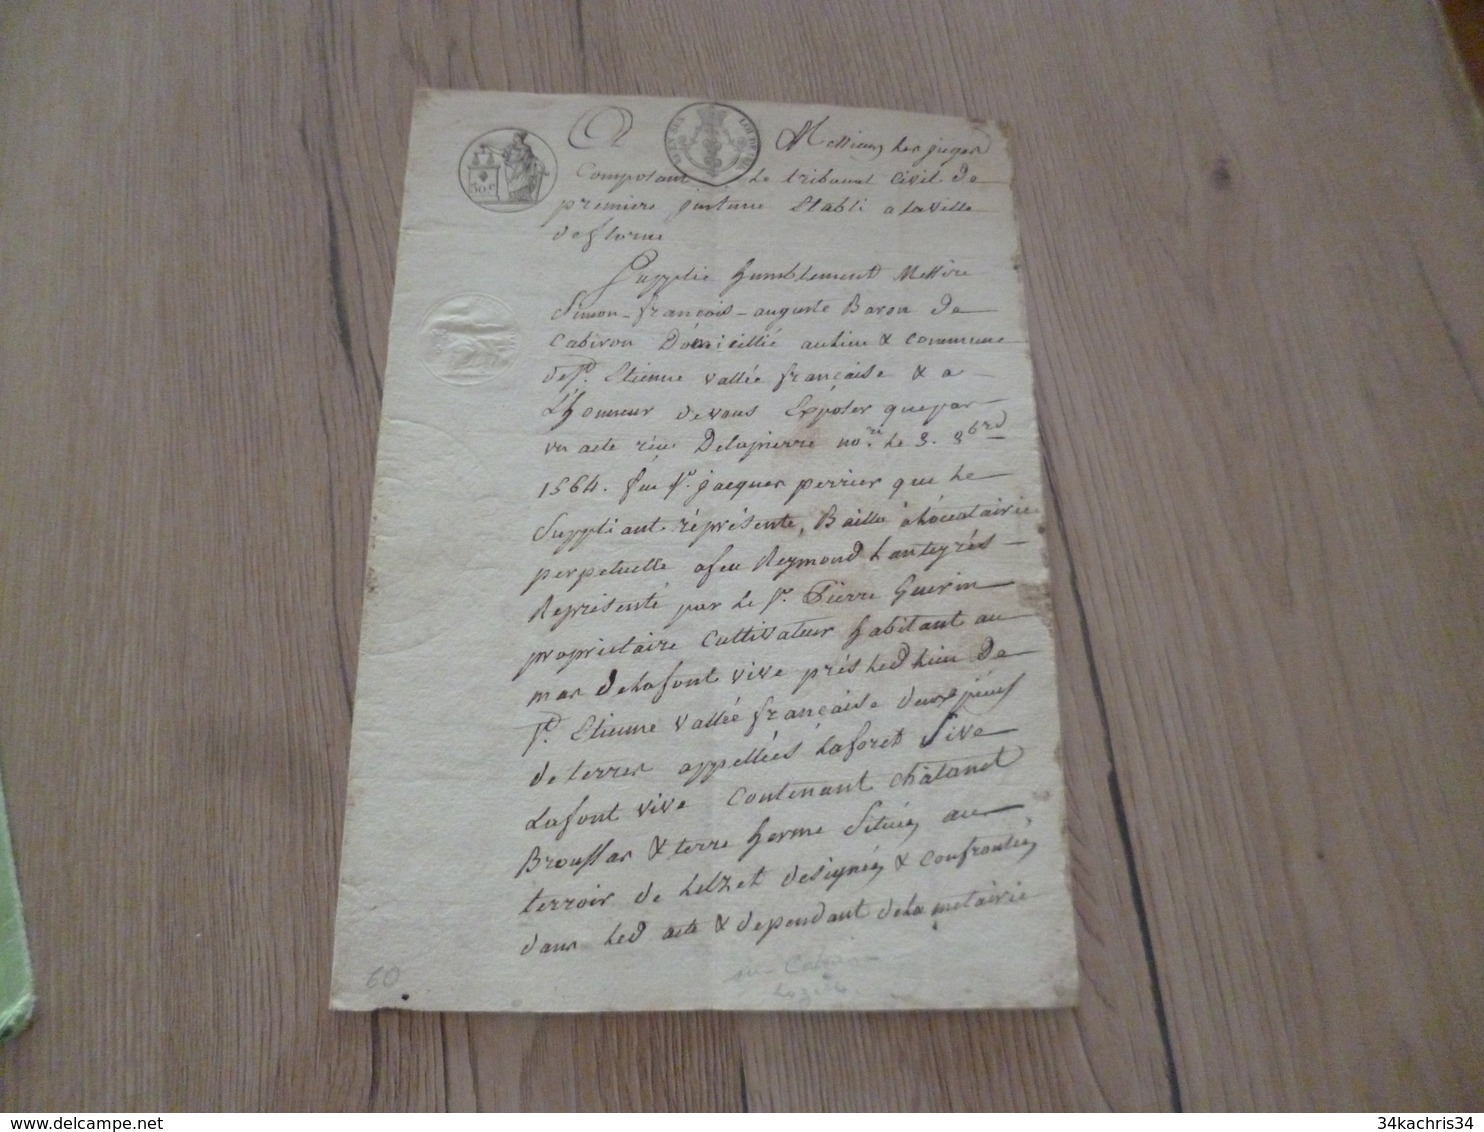 A Messieurs Les juges
Composant Le tribunal Civil De
premiere instance Etabli a la ville
de florac
Supplie humblement Messire
Simon-françois-auguste Baron De
Cabiron Domicillié au lieu & commune
de St. Etienne vallée française & a
L'honneur de vous Exposer que par
un acte réçu Delapierre nore. Le 3. 9bre
1564. feu Sr. jacques perrier que Le
Suppliant répresente, Bailla à Locatairie
perpetuelle a feu Reymond Lanteyrés
Représenté par Le Sr. Pierre Guerin
proprietaire Cultivateur habitant au
mas de Lafont vive prés Led Lieu De
St. Etienne Vallée française deux piéces
de terres appellées Laforet Sive
Lafont vive Contenant Châtanet
Broussas & terre herme Situées au
terroir de Lelzet designées & confrontées
dans Led acte & dependant de la metairie
30c
60
34kachris34
www.delcampe.net